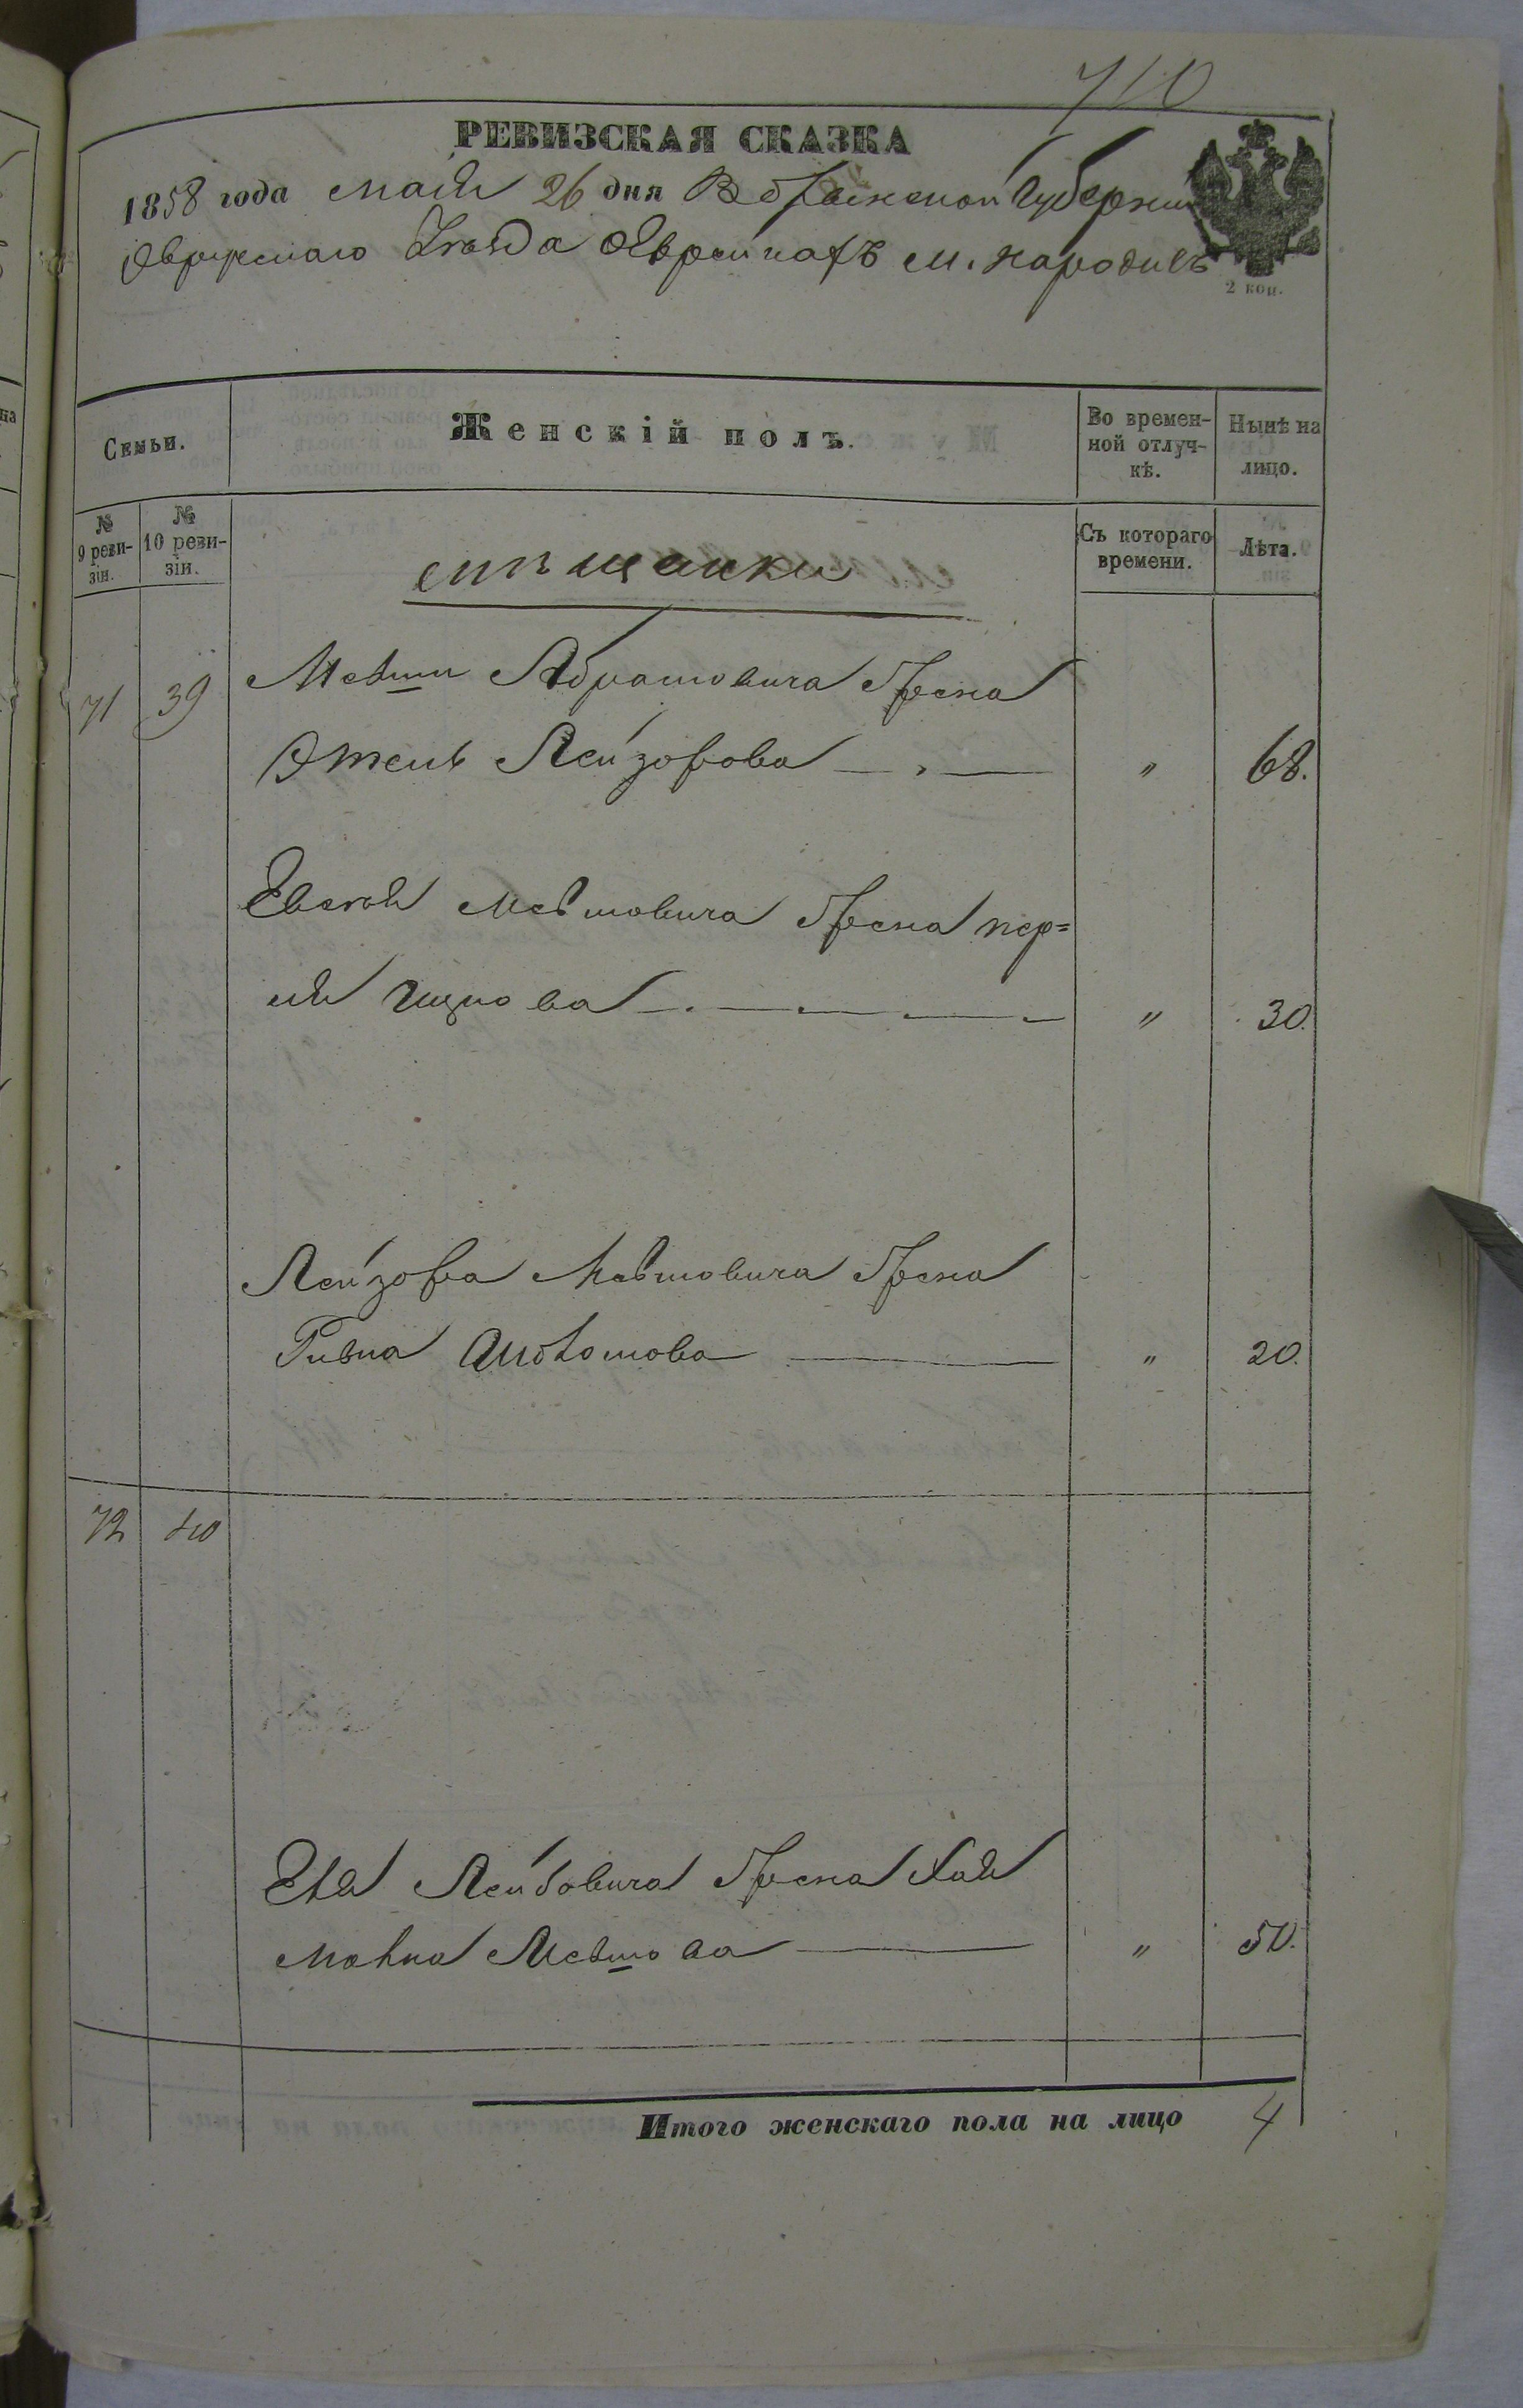 710
РЕВИЗСКАЯ СКАЗКА
1858 года мая 26 дня Волынской Губернии
Овручскаго Уѣзда О Евреихъ м. Народичъ
2 коп.
Семьи.
Женскій полъ.
Во времен-
ной отлуч-
кѣ.
Нынѣ на
лицо.
№
9 реви-
зіи.
№
10 реви-
зіи.
Съ котораго
времени.
Лѣта.
мѣщанки
71 39 Мевши Абрамовича Жена
Лейзорова " 68.
Мевшовича Жена пер=
ля " 30.
Лейзора Мевшовича Жена
Ривка " 20.
72 40
Лейбовича Жена Хая
Мевшова " 50.
Итого женскаго пола на лицо 4